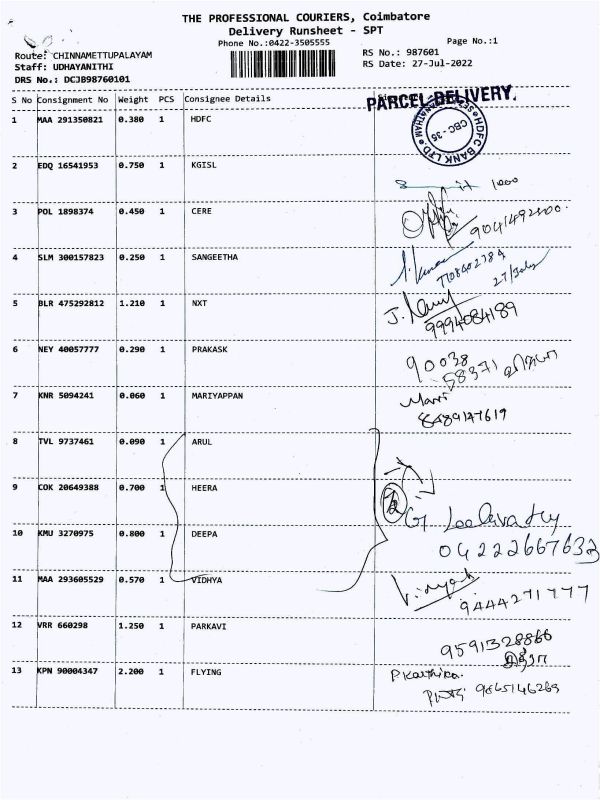 THE PROFESSIONAL COURIERS, Coimbatore
Delivery Runsheet - SPT
Phone No.:0422-3505555
Page No.:1
Route: CHINNAMETTUPALAYAM
RS No.: 987601
Staff: UDHAYANITHI
RS Date: 27-Jul-2022
DRS No.: DCJB98760101
S No Consignment No Weight PCS Consignee Details
PARCEL DELIVERY.
1 MAA 291350821 0.380 1 HDFC
HDFC BANK LTD
CBC - 35
2 EDQ 16541953 0.750 1 KGISL
1000
3 POL 1898374 0.450 1 CERE
4 SLM 300157823 0.250 1 SANGEETHA
27/July
5 BLR 475292812 1.210 1 NXT
9994084189
6 NEY 40057777 0.290 1 PRAKASK
90038
58371
7 KNR 5094241 0.060 1 MARIYAPPAN
Mari
8489147619
8 TVL 9737461 0.090 1 ARUL
9 COK 20649388 0.700 1 HEERA
G Leelavathy
10 KMU 3270975 0.800 1 DEEPA
04222667632
11 MAA 293605529 0.570 1 VIDHYA
Vidyah
9444271777
12 VRR 660298 1.250 1 PARKAVI
9591328866
13 KPN 90004347 2.200 1 FLYING
P Karthika.
9865146269